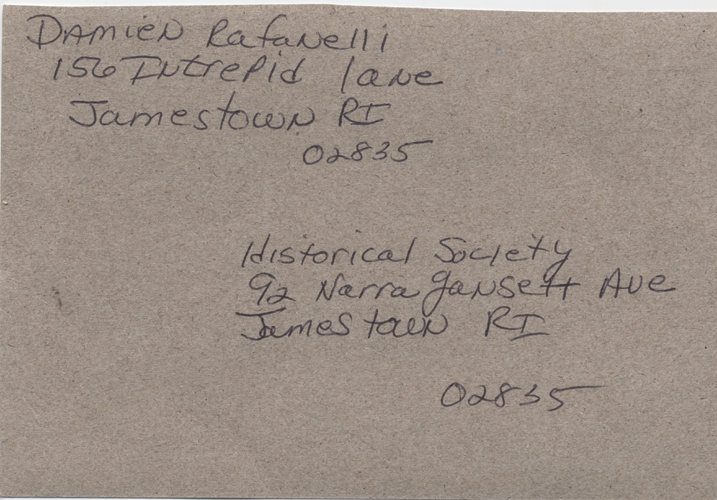 Damien Rafanelli
156 Intrepid lane
Jamestown RI
02835
Historical Society
92 Narragansett Ave
Jamestown RI
02835